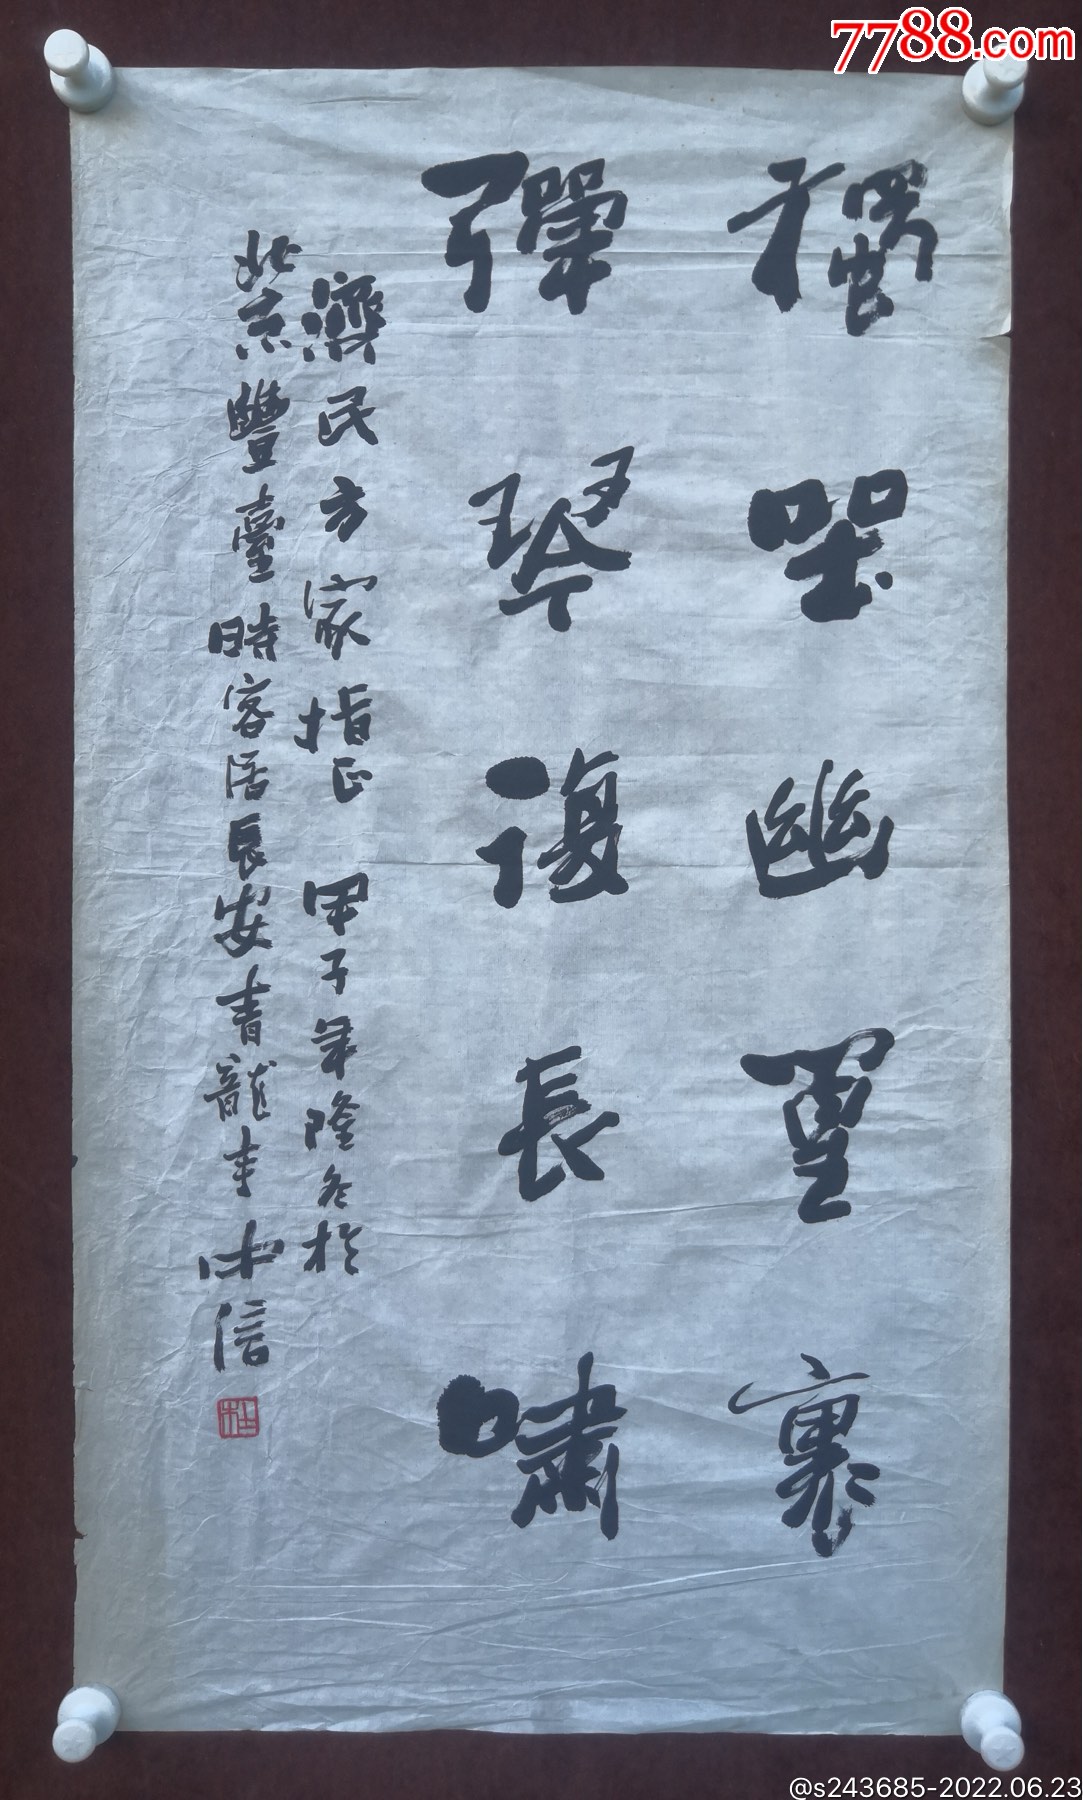 7788.com
獨坐幽篁裏
彈琴復長嘯
濟民方家指正 甲子年隆冬於
北京豐臺時客居長安青龍寺 中信
@s243685-2022.06.23